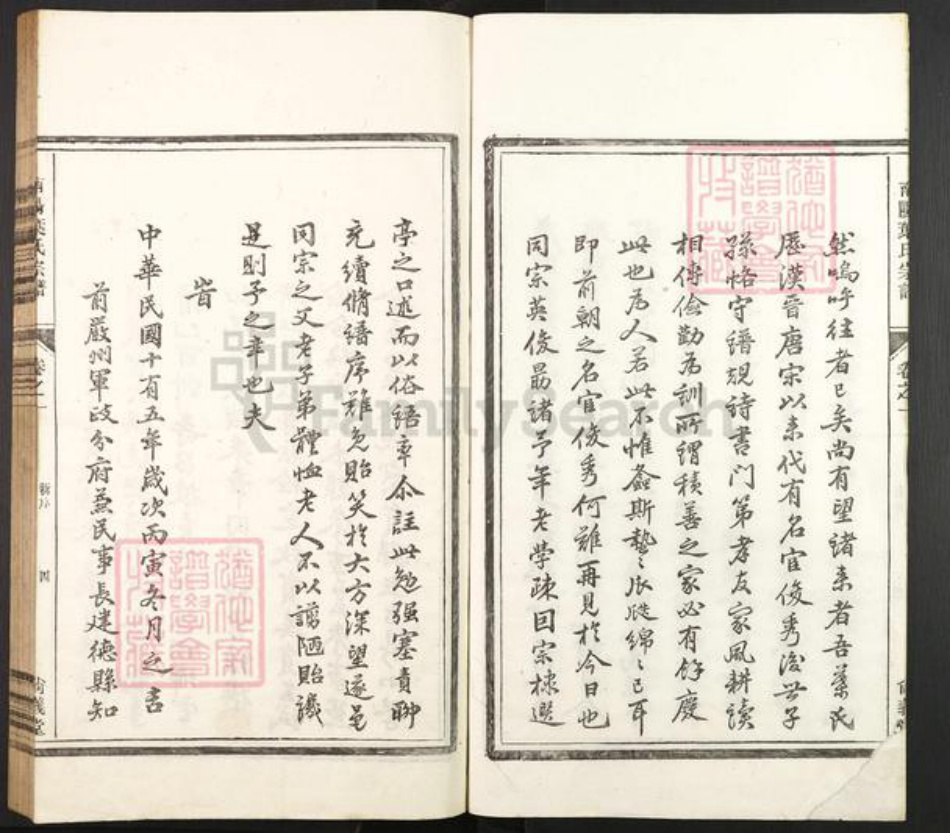 然嗚呼往者已矣尚有望諸來者吾葉氏
歷漢晉唐宋以來代有名宦俊秀後世子
孫恪守譜規詩書門第孝友家風耕讀
相傳儉勤為訓所謂積善之家必有餘慶
此也為人若此不惟螽斯蟄蟄瓜瓞綿綿已耳
即前朝之名宦俊秀何難再見於今日也
同宗英俊勗諸予年老學疎因宗棣選
亭之口述而以俗語率爾註此勉强塞責聊
充續脩譜序難免貽笑於大方深望遂邑
同宗之父老子弟體恤老人不以謭陋貽譏
是則予之幸也夫
旹
中華民國十有五年歲次丙寅冬月之吉
前嚴州軍政分府兼民事長建德縣知
南陽葉氏宗譜
卷之一
新序
四
尙義堂
FamilySearch